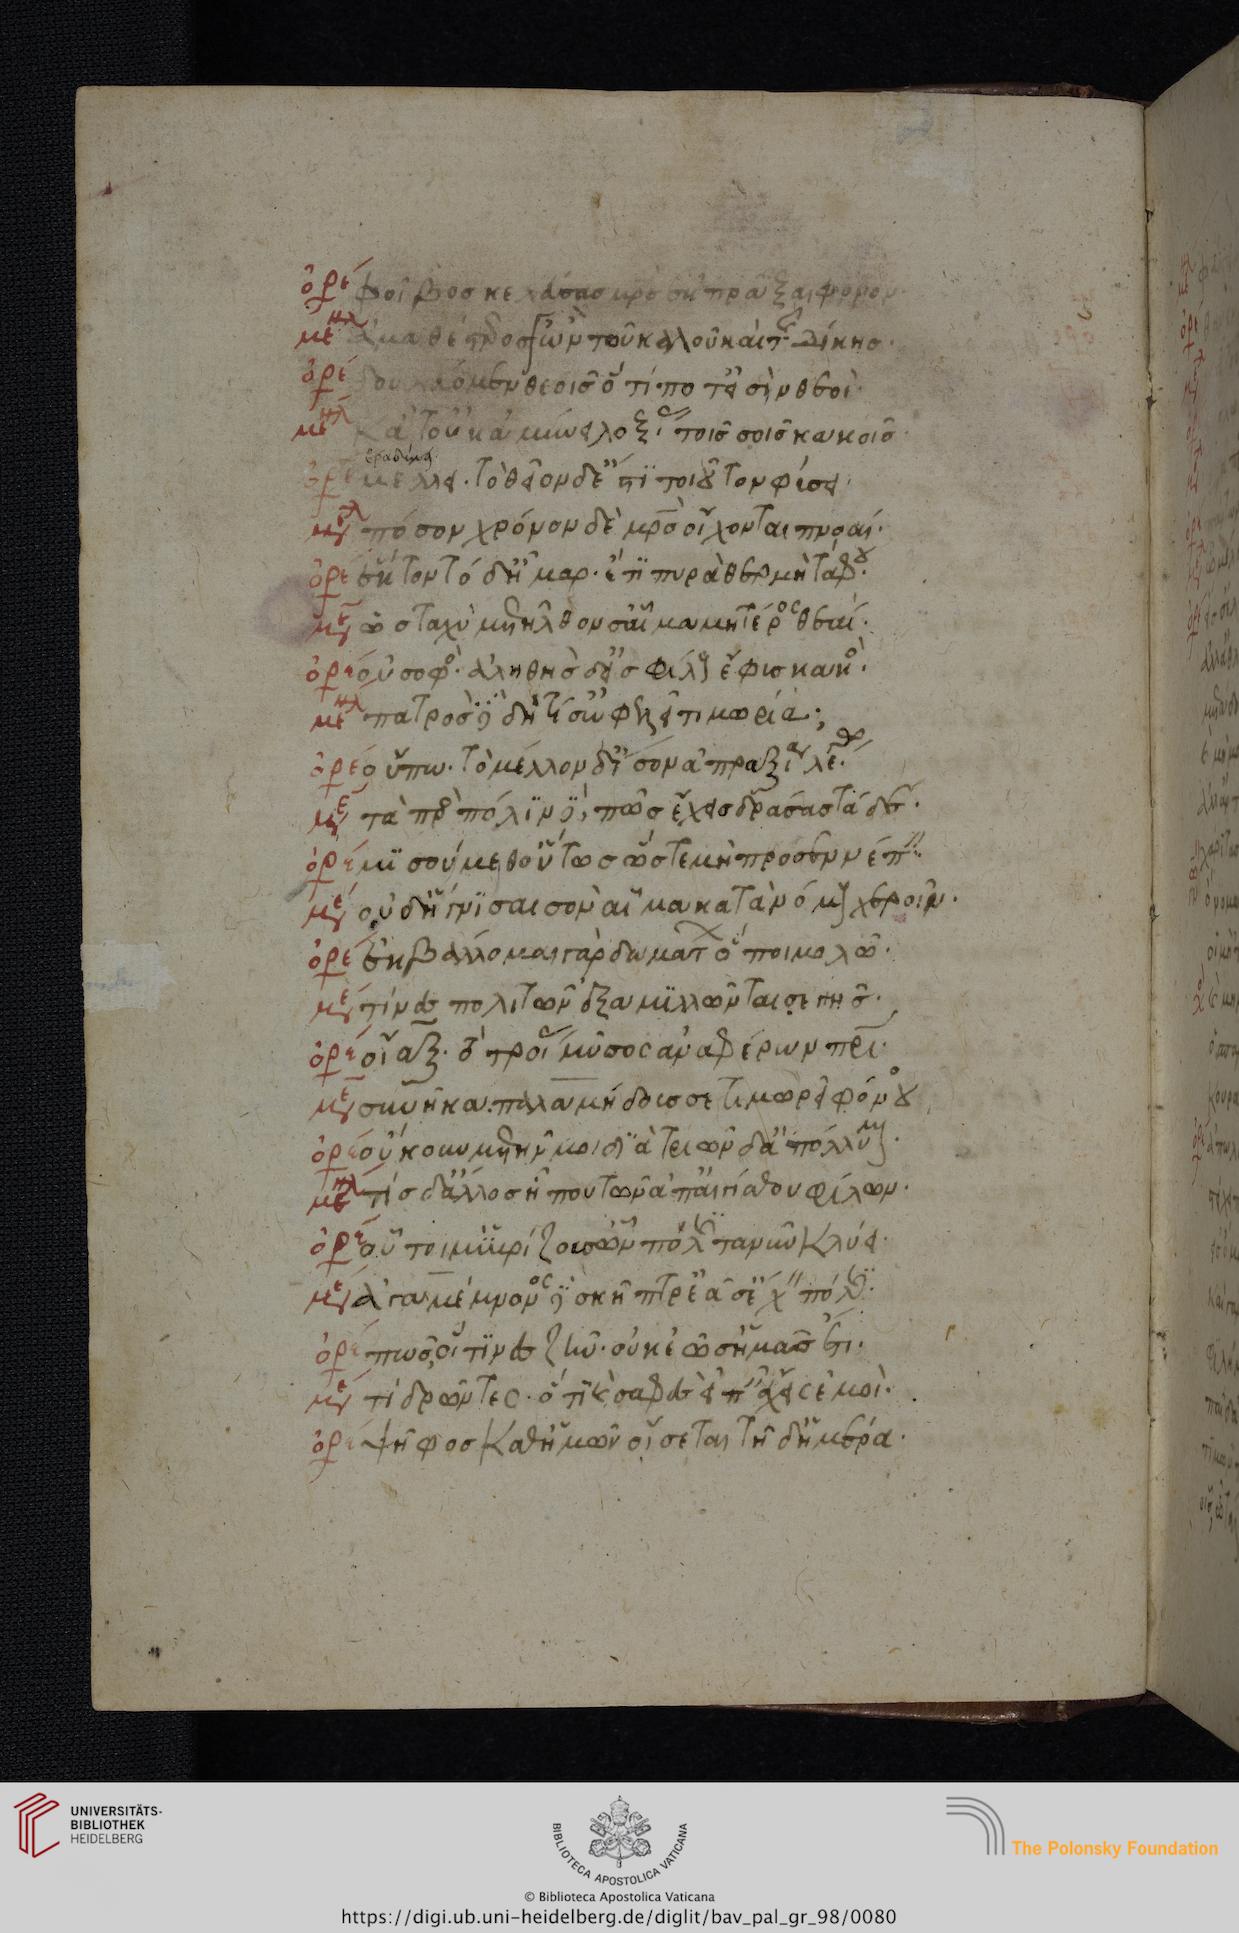 ὀρέ φοῖβος κελεύσας μρὸς ἐκπρᾶξαι φόνον
μενλ ἀμαθέστερος γ' ὢν τοῦ καλοῦ καὶ τῆς δίκης·
ὀρέ δουλεύομεν θεοῖς ὅ τι ποτ' εἰσὶν θεοί·
μενλ κᾆτ' οὐκ ἀμύνει λοξίας τοῖς σοῖς κακοῖς·
βραδύνει
ὀρέ μέλλει· τὸ θεῖον δ' ἐστὶ τοιοῦτον φύσει·
μεν πόσον χρόνον δὲ μρὸς οἴχονται πνοαί·
ὀρέ ἕκτον τόδ' ἦμαρ· ἔτι πυρὰ θερμὴ τάφου·
μεν ὡς ταχὺ μετῆλθον σ' αἷμα μητέρος θεαί·
ὀρέ οὐ σοφός· ἀληθὴς δ' εἰς φίλους ἔφυς κακός·
μενλ πατρὸς δὲ δή τί σ' ὠφελεῖ τιμωρία;
ὀρέ οὔπω· τὸ μέλλον δ' ἴσον ἀπραξίᾳ λέγω·
μεν τὰ πρὸς πόλιν δὲ πῶς ἔχεις δράσας τάδε·
ὀρέ μισούμεθ' οὕτως ὥστε μὴ προσεννέπειν·
μεν οὐδ' ἥγνισαι σὸν αἷμα κατὰ νόμους χεροῖν·
ὀρέ ἐκβάλλομαι γὰρ δωμάτων ὅποι μολῶ·
μεν τίνες πολιτῶν ἐξαμιλλῶνταί σε γῆς·
ὀρέ οἴαξ· τὸ τροίας μῦσος ἀναφέρων πρι·
μεν συνῆκα· παλαμήδους σε τιμωρεῖ φόνου
ὀρέ οὗ γ' οὐ μετῆν μοι διὰ τριῶν δ' ἀπόλλυμαι·
μενλ τίς δ' ἄλλος ἦ που τῶν ἀπ' αἰγίσθου φίλων·
ὀρέ οὗτοι μ' ὑβρίζουσ' ὧν πόλις τανῦν κλύει·
μεν ἀγαμέμνονος δὲ σκῆπτρ' ἐᾷ σ' ἔχειν πόλις·
ὀρέ πῶς, οἵτινες ζῆν· οὐκ ἐῶσ' ἡμᾶς ἔτι·
μεν τί δρῶντες· ὅ τι καὶ σαφὲς εἰπεῖν ἔχεις ἐμοί·
ὀρέ ψῆφος καθ' ἡμῶν οἴσεται τῇδ' ἡμέρᾳ·
UNIVERSITÄTS-
BIBLIOTHEK
HEIDELBERG
BIBLIOTECA APOSTOLICA VATICANA
The Polonsky Foundation
© Biblioteca Apostolica Vaticana
https://digi.ub.uni-heidelberg.de/diglit/bav_pal_gr_98/0080